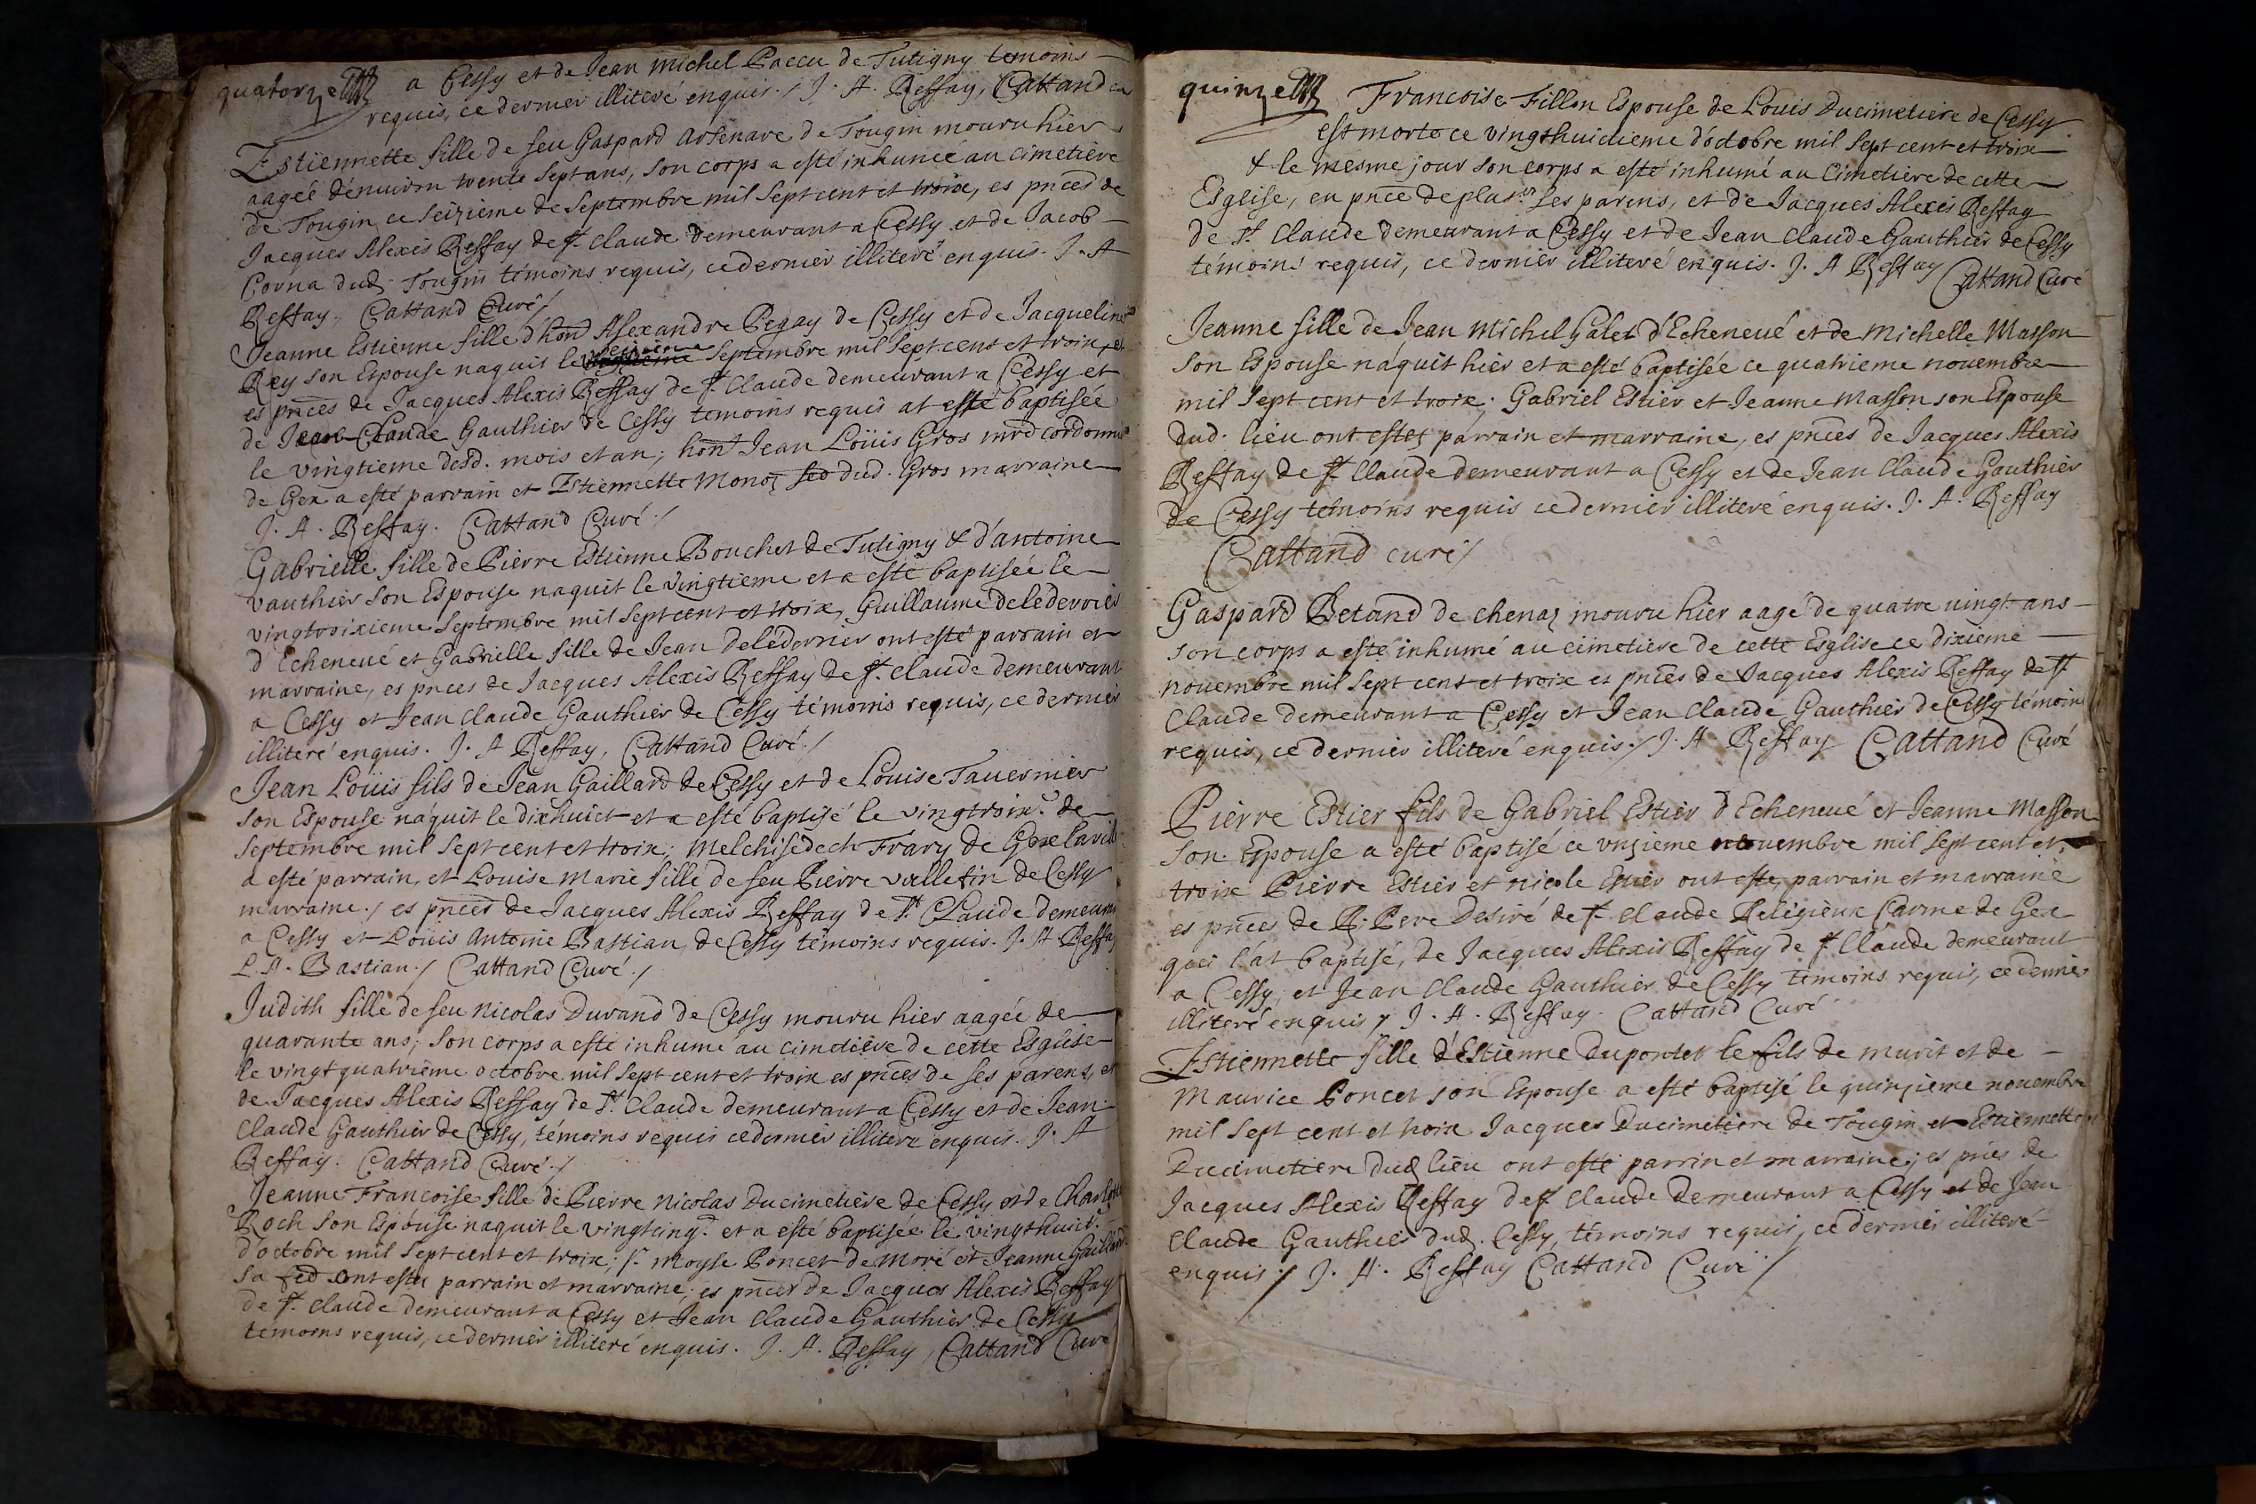 quatorze
a Cessy et de Jean michel Paccu de Tutigny temoins
requis, ce dernier illiteré enquis./ J. A. Reffay, Cattand cu
Estiennette fille de feu Gaspard Arsenave de Tougin mouru hier
aagée d'enuiron trente sept ans, son corps a esté inhumée au cimetiere
de Tougin ce seizieme de septembre mil sept cent et troix, es pnces de
Jacques Alexis Reffay de st. claude demeurant a Cessy et de Jacob
Corna dud. Tougin témoins requis, ce dernier illiteré enquis. J. A
Reffay, Cattand Curé/
Jeanne Estienne fille d'hon Alexandre Pegay de Cessy et de Jacqueline
Rey son Espouse naquit le septembre mil sept cens et troix, et
es pnces de Jacques Alexis Reffay de st. claude demeurant a Cessy et
de Jean Claude Gauthier de Cessy temoins requis at esté baptisée
le vingtieme desd. mois et an; hon Jean Loüis Gros mrd cordonnie
de Gex a esté parrain et Estiennette Monoz dud. Gros marraine
J. A. Reffay. Cattand Curé./
Gabrielle fille de Pierre Estienne Bouchet de Tutigny & d'antoine
vauthier son Espouse naquit le vingtieme et a esté baptisée le
vingtroixieme septembre mil sept cent et troix, Guillaume delederrier
d'Echeneué et Gabrielle fille de Jean delederrier ont esté parrain et
marraine, es pnces de Jacques Alexis Reffay de st. claude demeurant
a Cessy et Jean claude Gauthier de Cessy témoins requis, ce dernier
illiteré enquis. J. A Reffay, Cattand Curé./
Jean Loüis fils de Jean Gaillard de Cessy et de Louise Tauernier
son Espouse náquit le dixhuict et a esté baptisé le vingtroixe. de
septembre mil sept cent et troix; Melchisedech Frary de Gex la vill
a esté parrain, et Louise Marie fille de feu Pierre valletin de Cessy
marraine./ es pnces de Jacques Alexis Reffay de St. Claude demeuran
a Cessy et Loüis Antoine Bastian de Cessy témoins requis. J. A Reffay
L. A. Bastian./ Cattand Curé./
Judith fille de feu Nicolas Durand de Cessy mouru hier aagée de
quarante ans; son corps a esté inhumé au cimetiere de cette Esglise
le vingt quatrieme octobre mil sept cent et troix es pnces de ses parens, et
de Jacques Alexis Reffay de St. Claude demeurant a Cessy et de Jean
Claude Gauthier de Cessy, témoins requis ce dernier illiteré enquis. J. A
Reffay. Cattand Curé./
Jeanne Francoise fille de Pierre Nicolas Ducimetiere de Cessy et de Charlotte
Roch son Espouse naquit le vingtcinqe. et a esté baptisée le vingthuicte.
d'octobre mil sept cent et troix; sr. Moyse Poncet de Moré et Jeanne Gaillard
sa ont estés parrain et marraine; es pnces de Jacques Alexis Reffay
de st. claude demeurant a Cessy et Jean Claude Gauthier de Cessy
témoins requis, ce dernier illiteré enquis. J. A. Reffay, Cattand Curé
quinze
Francoise Fillon Espouse de Louis Ducimetiere de Cessy
est morte ce vingthuictieme d'octobre mil sept cent et troix
& le mesme jour son corps a esté inhumé au Cimetiere de cette
Esglise, en pnce de plusrs. ses parens, et de Jacques Alexis Reffay
de St. Claude demeurant a Cessy et de Jean claude Gauthier de Cessy
témoins requis, ce dernier illiteré enquis. J. A Reffay Cattand Curé
Jeanne fille de Jean Michel Galet d'Echeneué et de Michelle Masson
son Espouse naquit hier et a esté baptisée ce quatrieme novembre
mil sept cent et troix; Gabriel Estier et Jeanne Masson son Espouse
dud. lieu ont estes parrain et marraine, es pnces de Jacques Alexis
Reffay de st. claude demeurant a Cessy et de Jean Claude Gauthier
de Cessy témoins requis ce dernier illiteré enquis. J. A. Reffay
Cattand curé/
Gaspard Betand de chenaz mouru hier aagé de quatre uingt ans
son corps a esté inhumé au cimetiere de cette Esglise ce dixieme
nouembre mil sept cent et troix es pnces de Jacques Alexis Reffay de st
Claude demeurant a Cessy et Jean Claude Gauthier de Cessy témoin
requis, ce dernier illiteré enquis./ J. A Reffay Cattand Curé
Pierre Estier fils de Gabriel Estier d'Echeneué et Jeanne Masson
son Espouse a esté baptisé ce vnzieme nouembre mil sept cent et
troix Pierre Estier et nicole Estier ont estes parrain et marraine
es pnces de R. Pere Desiré de st. claude Religieux Carme de Gex
qui l'at baptisé, de Jacques Alexis Reffay de st. Claude demeurant
a Cessy, et Jean Claude Gauthier de Cessy temoins requis, ce dernier
illiteré enquis, J. A. Reffay. Cattand Curé
Estiennette fille d'Estienne duportet le fils de murit et de
Maurice Poncet son Espouse a esté baptisé le quinzieme novembre
mil sept cent et troix Jacques Ducimetiere de Tougin et Estiennette
Ducimetiere dud lieu ont esté parrin et marraine; es pnces de
Jacques Alexis Reffay de st Claude demeurant a Cessy et de Jean
Claude Gauthier dud. Cessy, témoins requis, ce dernier illiteré
enquis/ J. A. Reffay Cattand Curé/